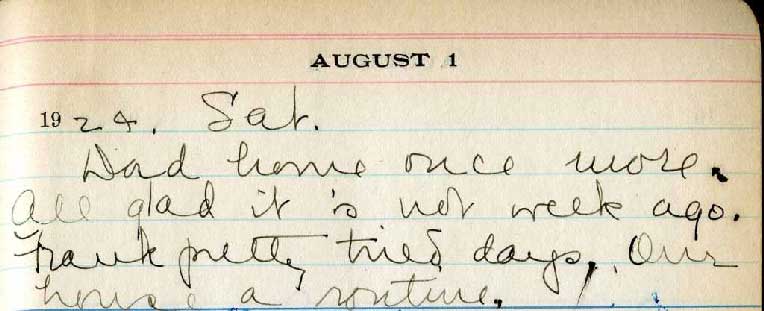 AUGUST 1
1924. Sat.
Dad home once more.
All glad it is not week ago.
Frank pretty tired days. Our
house a routine.